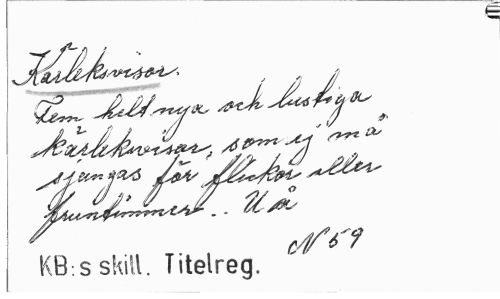 Kärleksvisor.
Fem helt nya och lustiga
kärleksvisor, som ej må
sjungas för flickor eller
fruntimmer.. U å
N 59
KB:s skill. Titelreg.